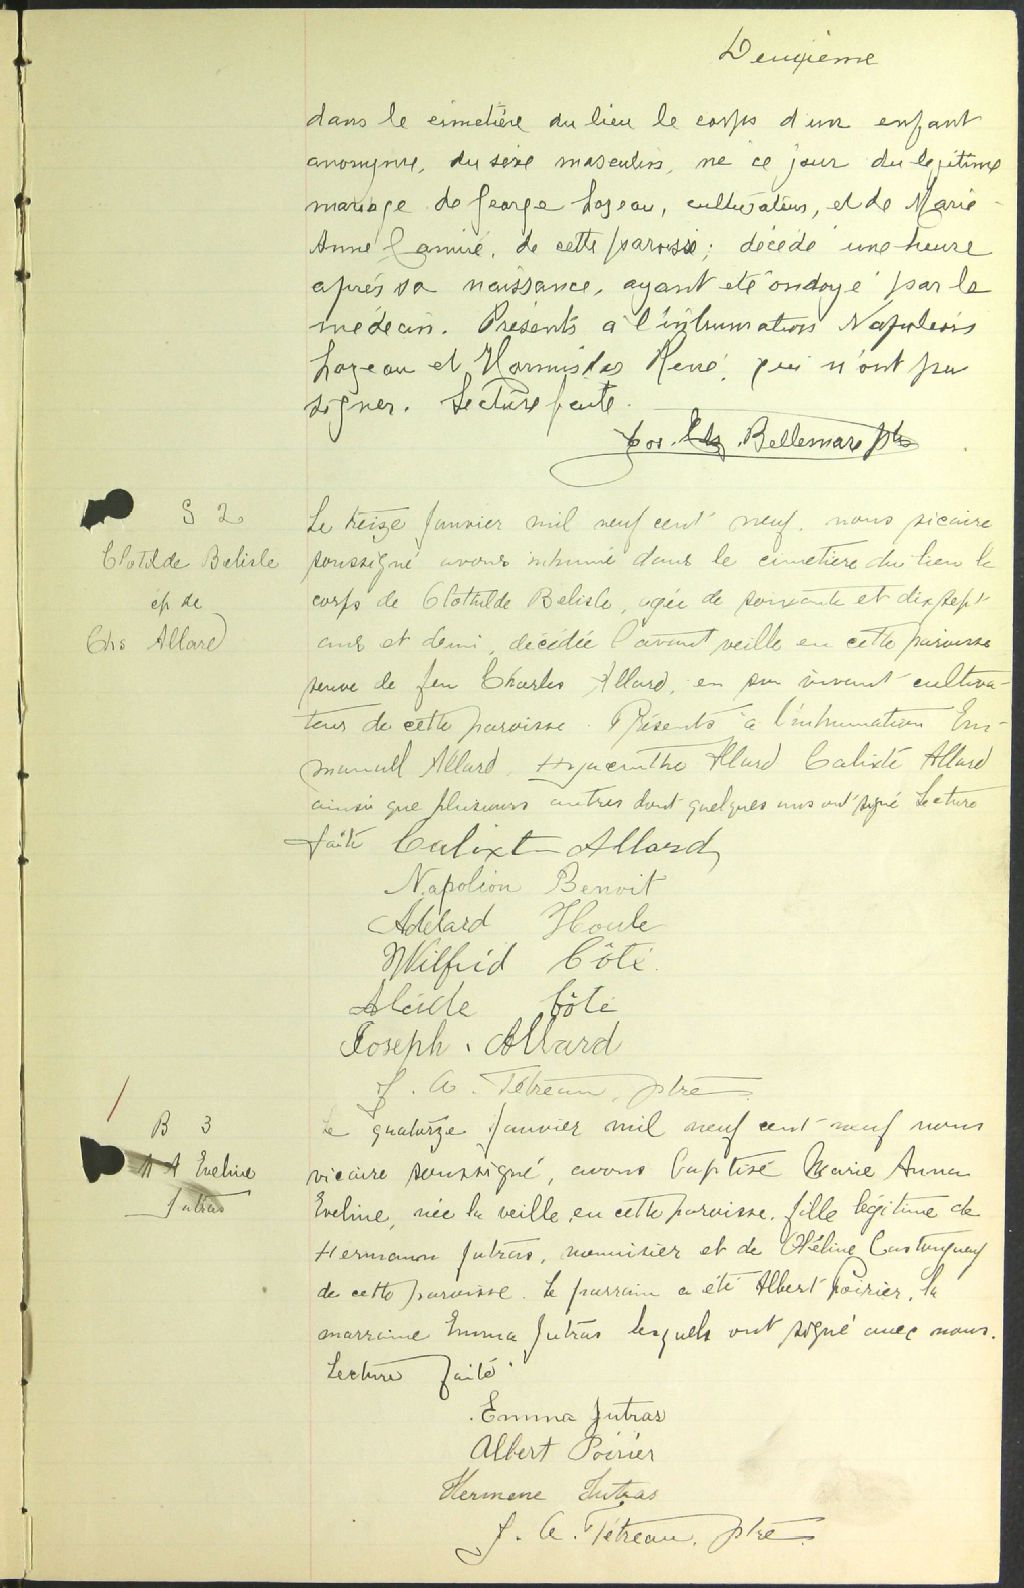 Deuxième
dans le cimetière du lieu le corps d'un enfant
anonyme, du sexe masculin, né ce jour du legitime
mariage de George Lozeau, cultivateur, et de Marie-
Anne Camiré, de cette paroisse; décédé une heure
après sa naissance, ayant été ondoyé par le
médecin. Présents à l'inhumation Napoléon
Lozeau et Hormisdas René, qui n'ont pu
signer. Lecture faite.
Jos. Els. Bellemare ptre
S 2
Clotilde Belisle
ep de
Chs Allard
Le treize Janvier mil neuf cent neuf, nous vicaire
soussigné avons inhumé dans le cimetière du lieu le
corps de Clothilde Belisle, agée de soixante et dix sept
ans et demi, décédée l'avant veille en cette paroisse
veuve de feu Charles Allard, en son vivant cultiva-
teur de cette paroisse. Présents à l'inhumation Em-
manuel Allard, Hyacinthe Allard Calixte Allard
ainsi que plusieurs autres dont quelques uns ont signé Lecture
faite Calixte Allard
Napoléon Benoit
Adélard Houle
Wilfrid Côté
Alcide Côté
Joseph Allard
J. A. Tétreau, ptre
B 3
M A Eveline
Jutras
Le quatorze Janvier mil neuf cent neuf nous
vicaire soussigné, avons baptisé Marie Anna
Eveline, née la veille en cette paroisse, fille légitime de
Hermann Jutras, menuisier et de Hélène Castonguay
de cette paroisse. Le parrain a été Albert Poirier, la
marraine Emma Jutras lesquels ont signé avec nous.
Lecture faite.
Emma Jutras
Albert Poirier
Hermene Jutras
J. A. Tétreau, ptre